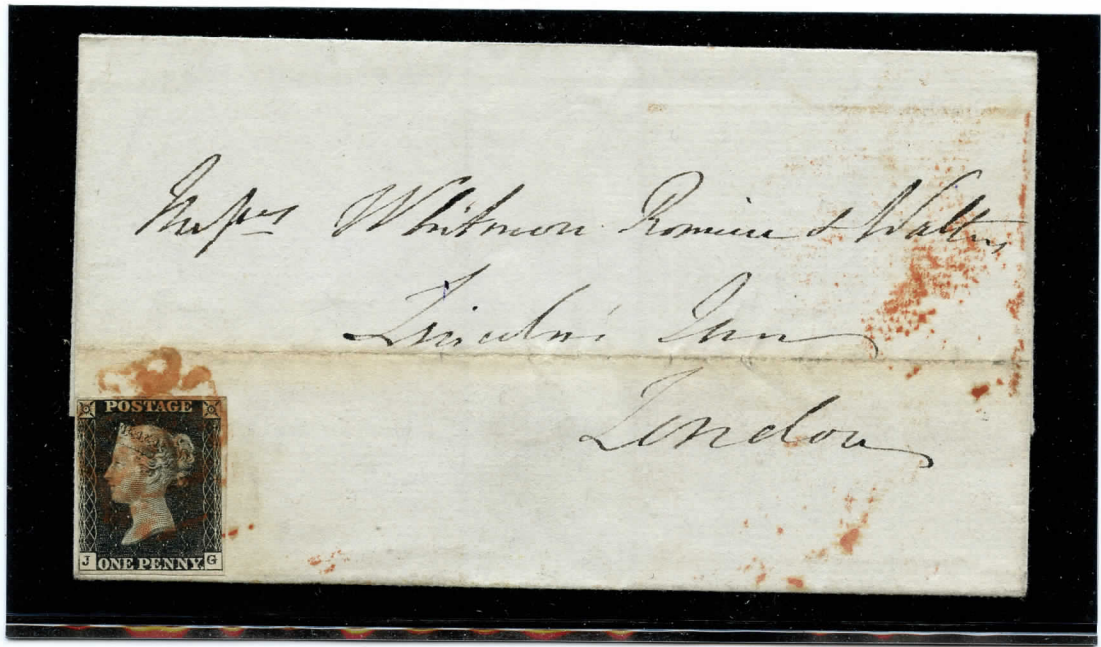 Messrs Whitmore Romieu & Walters
Lincoln's Inn
London
POSTAGE
J ONE PENNY. G